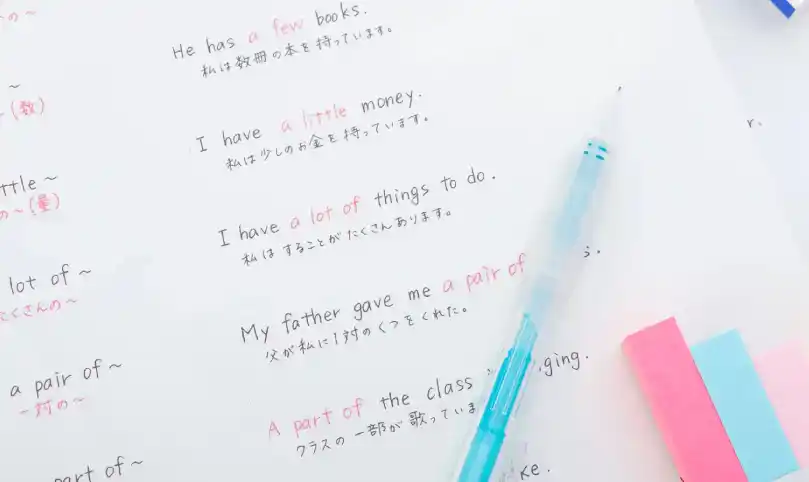 の～
He has a few books.
私は数冊の本を持っています。
～
～(数)
I have a little money.
私は少しのお金を持っています。
ttle～
の～(量)
I have a lot of things to do.
私はすることがたくさんあります。
lot of～
たくさんの～
My father gave me a pair of
父が私に1対のくつをくれた。
a pair of～
一対の～
A part of the class ging.
クラスの一部が歌っていま
part of～
ke.
r.